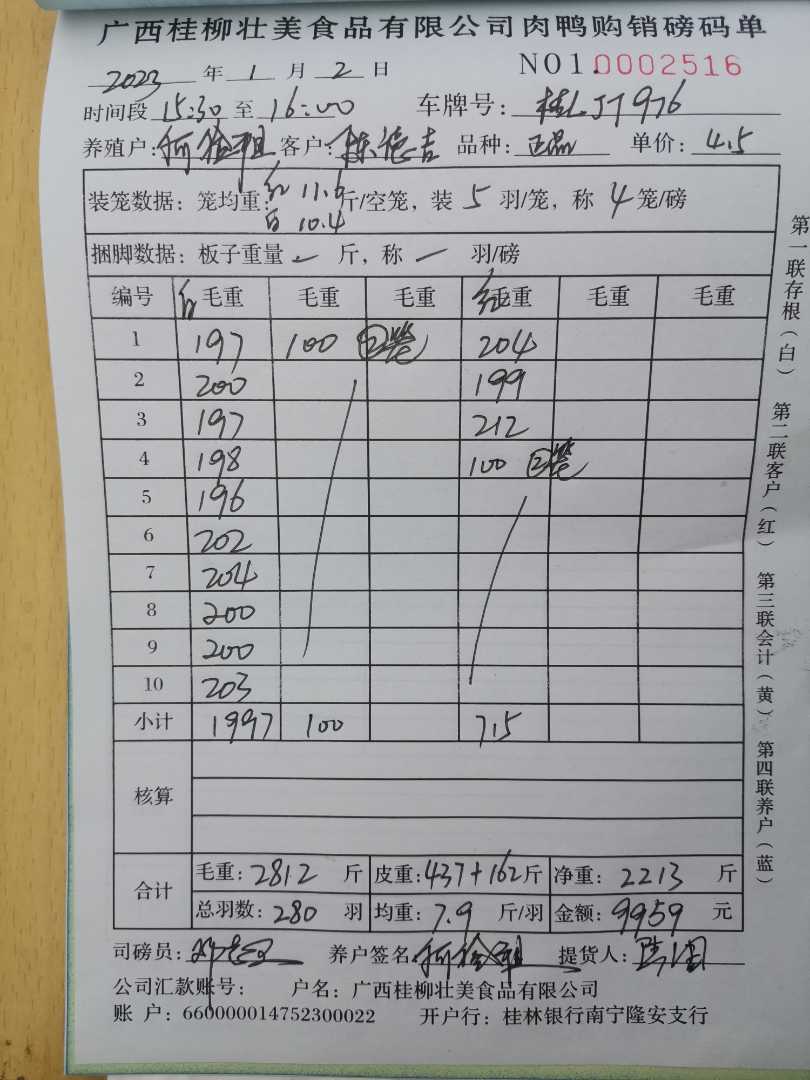 广西桂柳壮美食品有限公司肉鸭购销磅码单
2023 年 1 月 2 日 NO1.0002516
时间段 15:30 至 16:00 车牌号: 桂LJT976
养殖户: 客户: 陈德吉 品种: 正品 单价: 4.5
装笼数据: 笼均重: 红 11.6 白 10.4 斤/空笼, 装 5 羽/笼, 称 4 笼/磅
捆脚数据: 板子重量 - 斤, 称 - 羽/磅
编号 白 毛重 毛重 毛重 红 毛重 毛重 毛重
1 197 100 204
2 200 199
3 197 212
4 198 100
5 196
6 202
7 204
8 200
9 200
10 203
小计 1997 100 715
核算
合计 毛重: 2812 斤 皮重: 437+162 斤 净重: 2213 斤
总羽数: 280 羽 均重: 7.9 斤/羽 金额: 9959 元
司磅员: 养户签名: 提货人:
公司汇款账号: 户名: 广西桂柳壮美食品有限公司
账 户: 660000014752300022 开户行: 桂林银行南宁隆安支行
第一联存根(白) 第二联客户(红) 第三联会计(黄) 第四联养户(蓝)